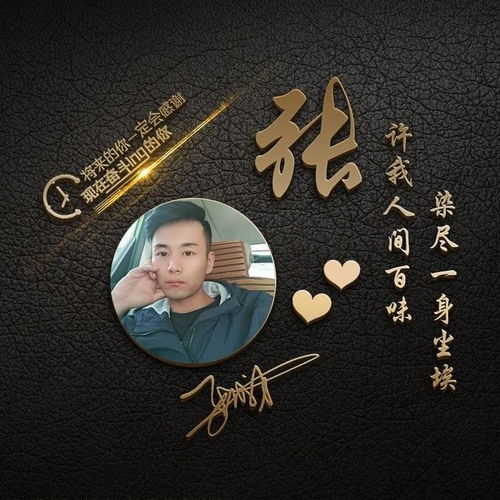 将来的你一定会感谢
现在奋斗ing的你
张
许我人间百味
染尽一身尘埃